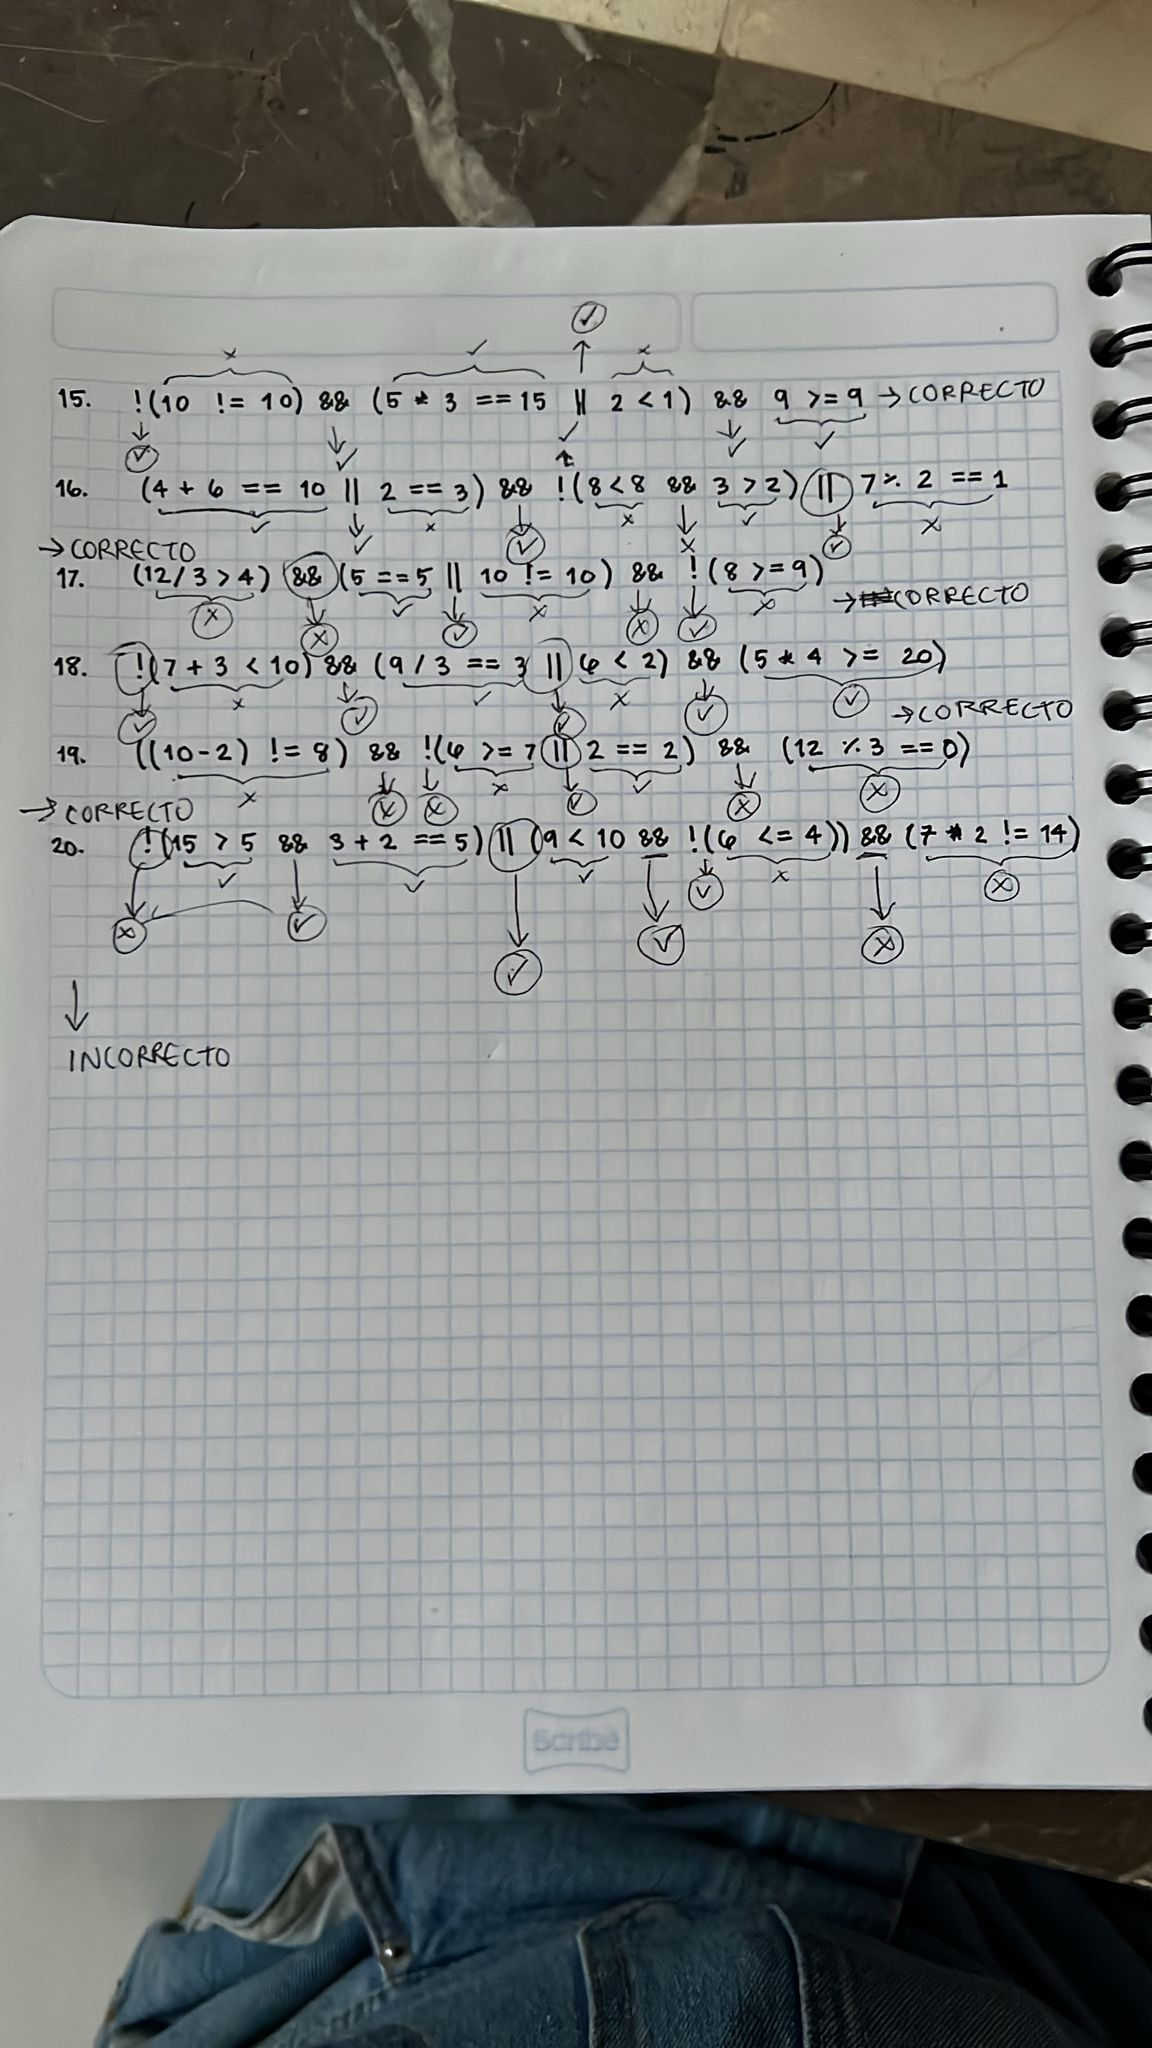 15. !(10 != 10) && (5 * 3 == 15 || 2 < 1) && 9 >= 9 → CORRECTO
16. (4 + 6 == 10 || 2 == 3) && !(8 < 8 && 3 > 2) || 7 % 2 == 1
→ CORRECTO
17. (12/3 > 4) && (5 == 5 || 10 != 10) && !(8 >= 9)
→ CORRECTO
18. !(7 + 3 < 10) && (9 / 3 == 3 || 6 < 2) && (5 * 4 >= 20)
→ CORRECTO
19. ((10-2) != 8) && !(6 >= 7 || 2 == 2) && (12 % 3 == 0)
→ CORRECTO
20. !(15 > 5 && 3 + 2 == 5) || (9 < 10 && !(6 <= 4)) && (7 * 2 != 14)
INCORRECTO
Scribe